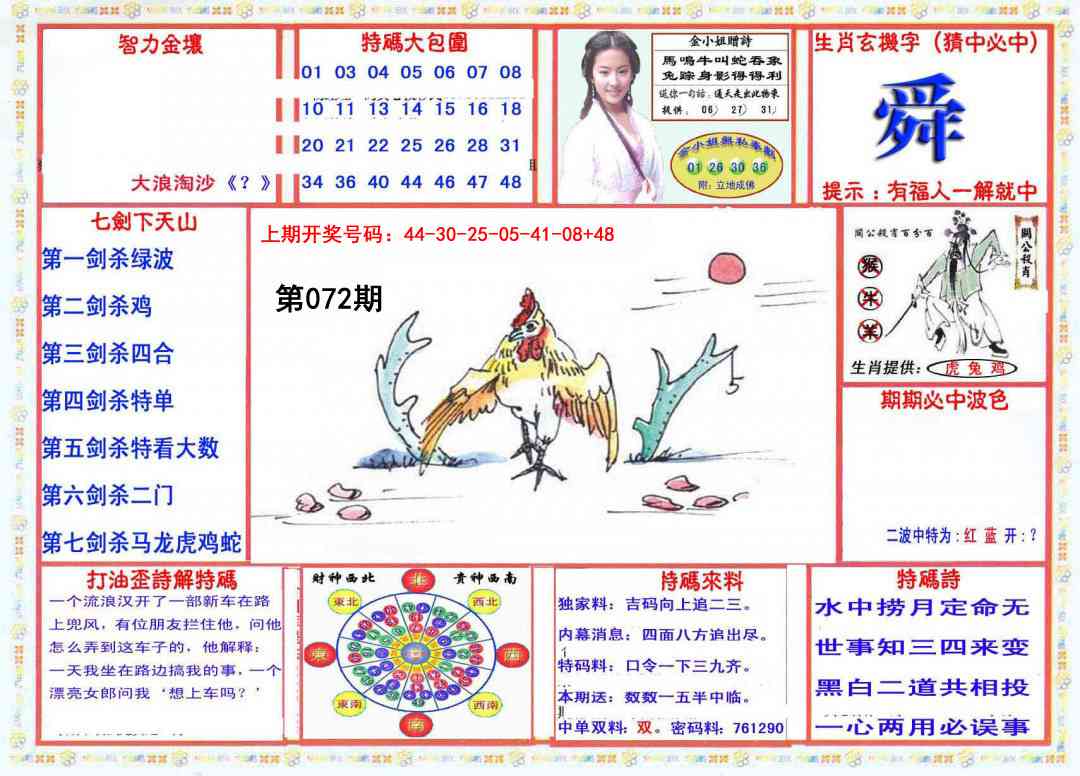 智力金壤
大浪淘沙《？》
特碼大包圍
01 03 04 05 06 07 08
10 11 13 14 15 16 18
20 21 22 25 26 28 31
34 36 40 44 46 47 48
金小姐贈詩
馬鳴牛叫蛇吞象
兔踪身影得得利
送你一句话：通天走出此物来
提供：06）27）31）
金小姐無私奉獻
01 26 30 36
附：立地成佛
生肖玄機字（猜中必中）
舜
提示：有福人一解就中
七劍下天山
第一剑杀绿波
第二剑杀鸡
第三剑杀四合
第四剑杀特单
第五剑杀特看大数
第六剑杀二门
第七剑杀马龙虎鸡蛇
上期开奖号码：44-30-25-05-41-08+48
第072期
關公殺肖百分百
關公殺肖
猴
牛
羊
生肖提供：虎 兔 鸡
期期必中波色
二波中特为：红 蓝 开：？
打油歪詩解特碼
一个流浪汉开了一部新车在路
上兜风，有位朋友拦住他，问他
怎么弄到这车子的，他解释：
一天我坐在路边搞我的事，一个
漂亮女郎问我‘想上车吗？’
財神西北
貴神西南
北
東北
西北
東
西
東南
西南
南
特碼來料
独家料：吉码向上追二三。
内幕消息：四面八方追出尽。
特码料：口令一下三九齐。
本期送：数数一五半中临。
中单双料：双。密码料：761290
特碼詩
水中捞月定命无
世事知三四来变
黑白二道共相投
一心两用必误事